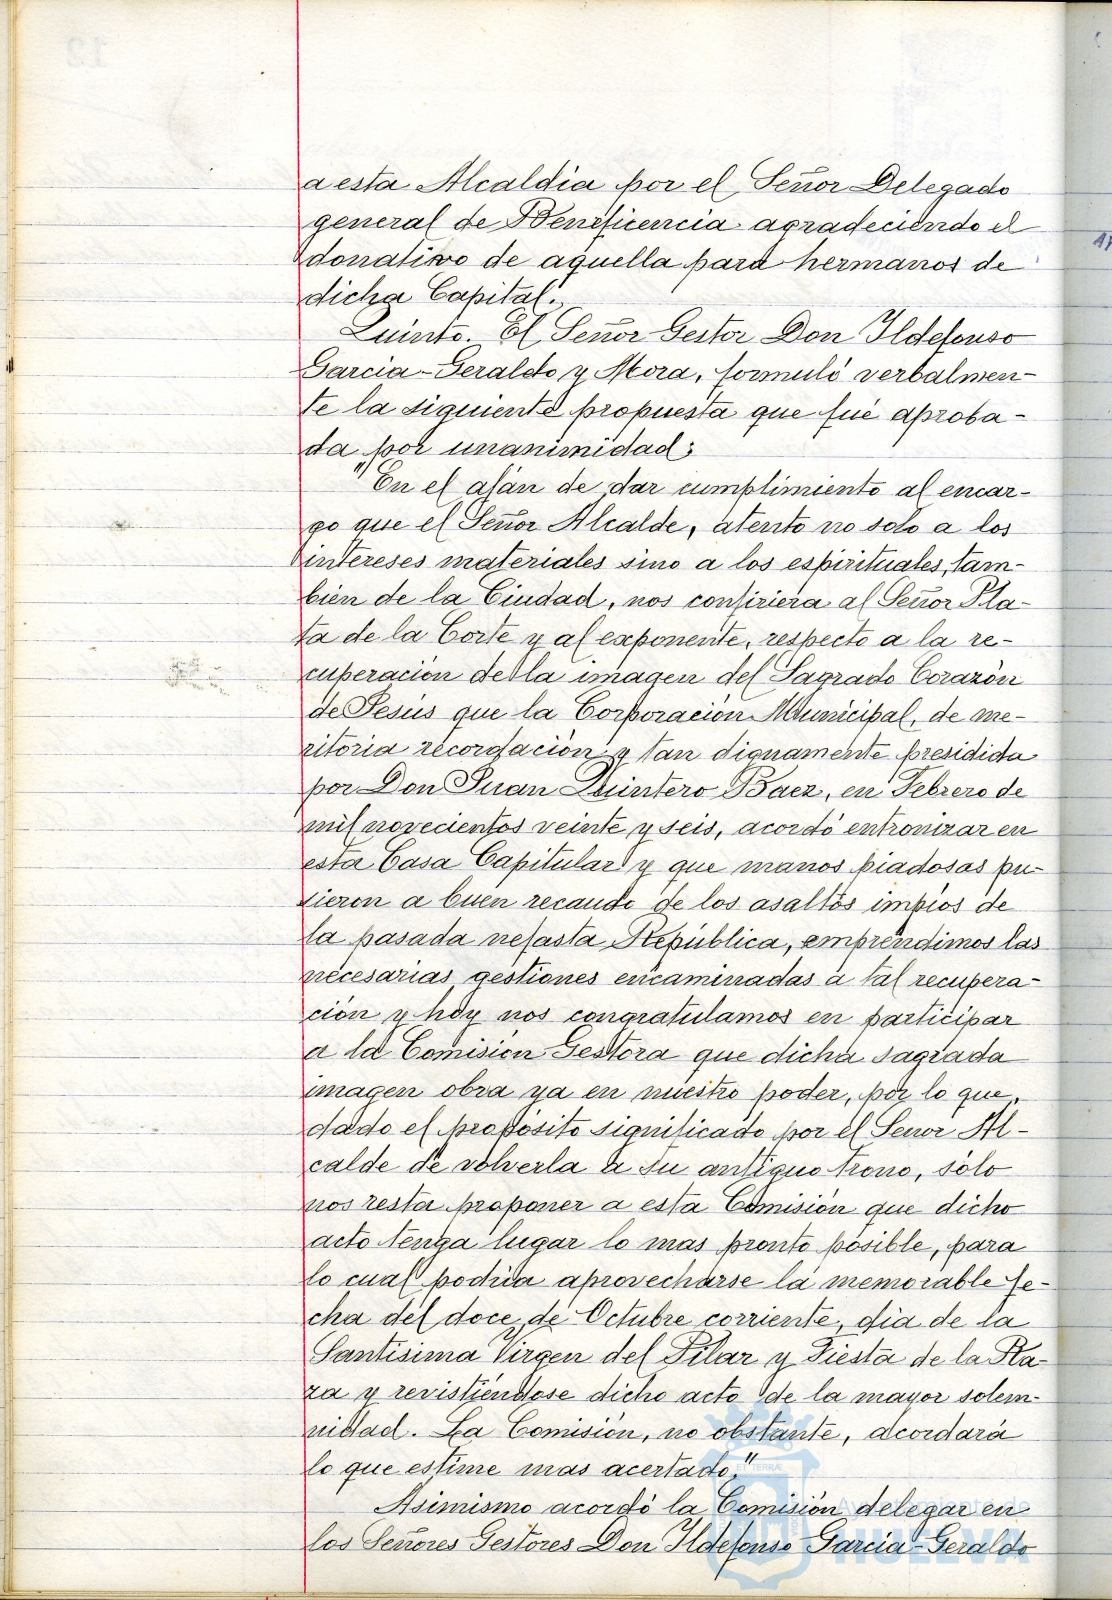 a esta Alcaldia por el Señor Delegado
general de Beneficencia agradeciendo el
donativo de aquella para hermanos de
dicha Capital.
Quinto. El Señor Gestor Don Ildefonso
Garcia-Geraldo y Mora, formuló verbalmen-
te la siguiente propuesta que fué aproba-
da por unanimidad:
"En el afán de dar cumplimiento al encar-
go que el Señor Alcalde, atento no solo a los
intereses materiales sino a los espirituales, tam-
bien de la Ciudad, nos confiriera al Señor Pla-
ta de la Corte y al exponente, respecto a la re-
cuperación de la imagen del Sagrado Corazón
de Jesús que la Corporación Municipal, de me-
ritoria recordación y tan dignamente presidida
por Don Juan Quintero Baez, en Febrero de
mil novecientos veinte y seis, acordó entronizar en
esta Casa Capitular y que manos piadosas pu-
sieron a buen recaudo de los asaltos impios de
la pasada nefasta República, emprendimos las
necesarias gestiones encaminadas a tal recupera-
ción y hoy nos congratulamos en participar
a la Comisión Gestora que dicha sagrada
imagen obra ya en nuestro poder, por lo que,
dado el propósito significado por el Señor Al-
calde de volverla a su antiguo trono, sólo
nos resta proponer a esta Comisión que dicho
acto tenga lugar lo mas pronto posible, para
lo cual podria aprovecharse la memorable fe-
cha del doce de Octubre corriente, dia de la
Santisima Virgen del Pilar y Fiesta de la Ra-
za y revistiéndose dicho acto de la mayor solem-
nidad. La Comisión, no obstante, acordará
lo que estime mas acertado."
Asimismo acordó la Comisión delegar en
los Señores Gestores Don Ildefonso Garcia-Geraldo